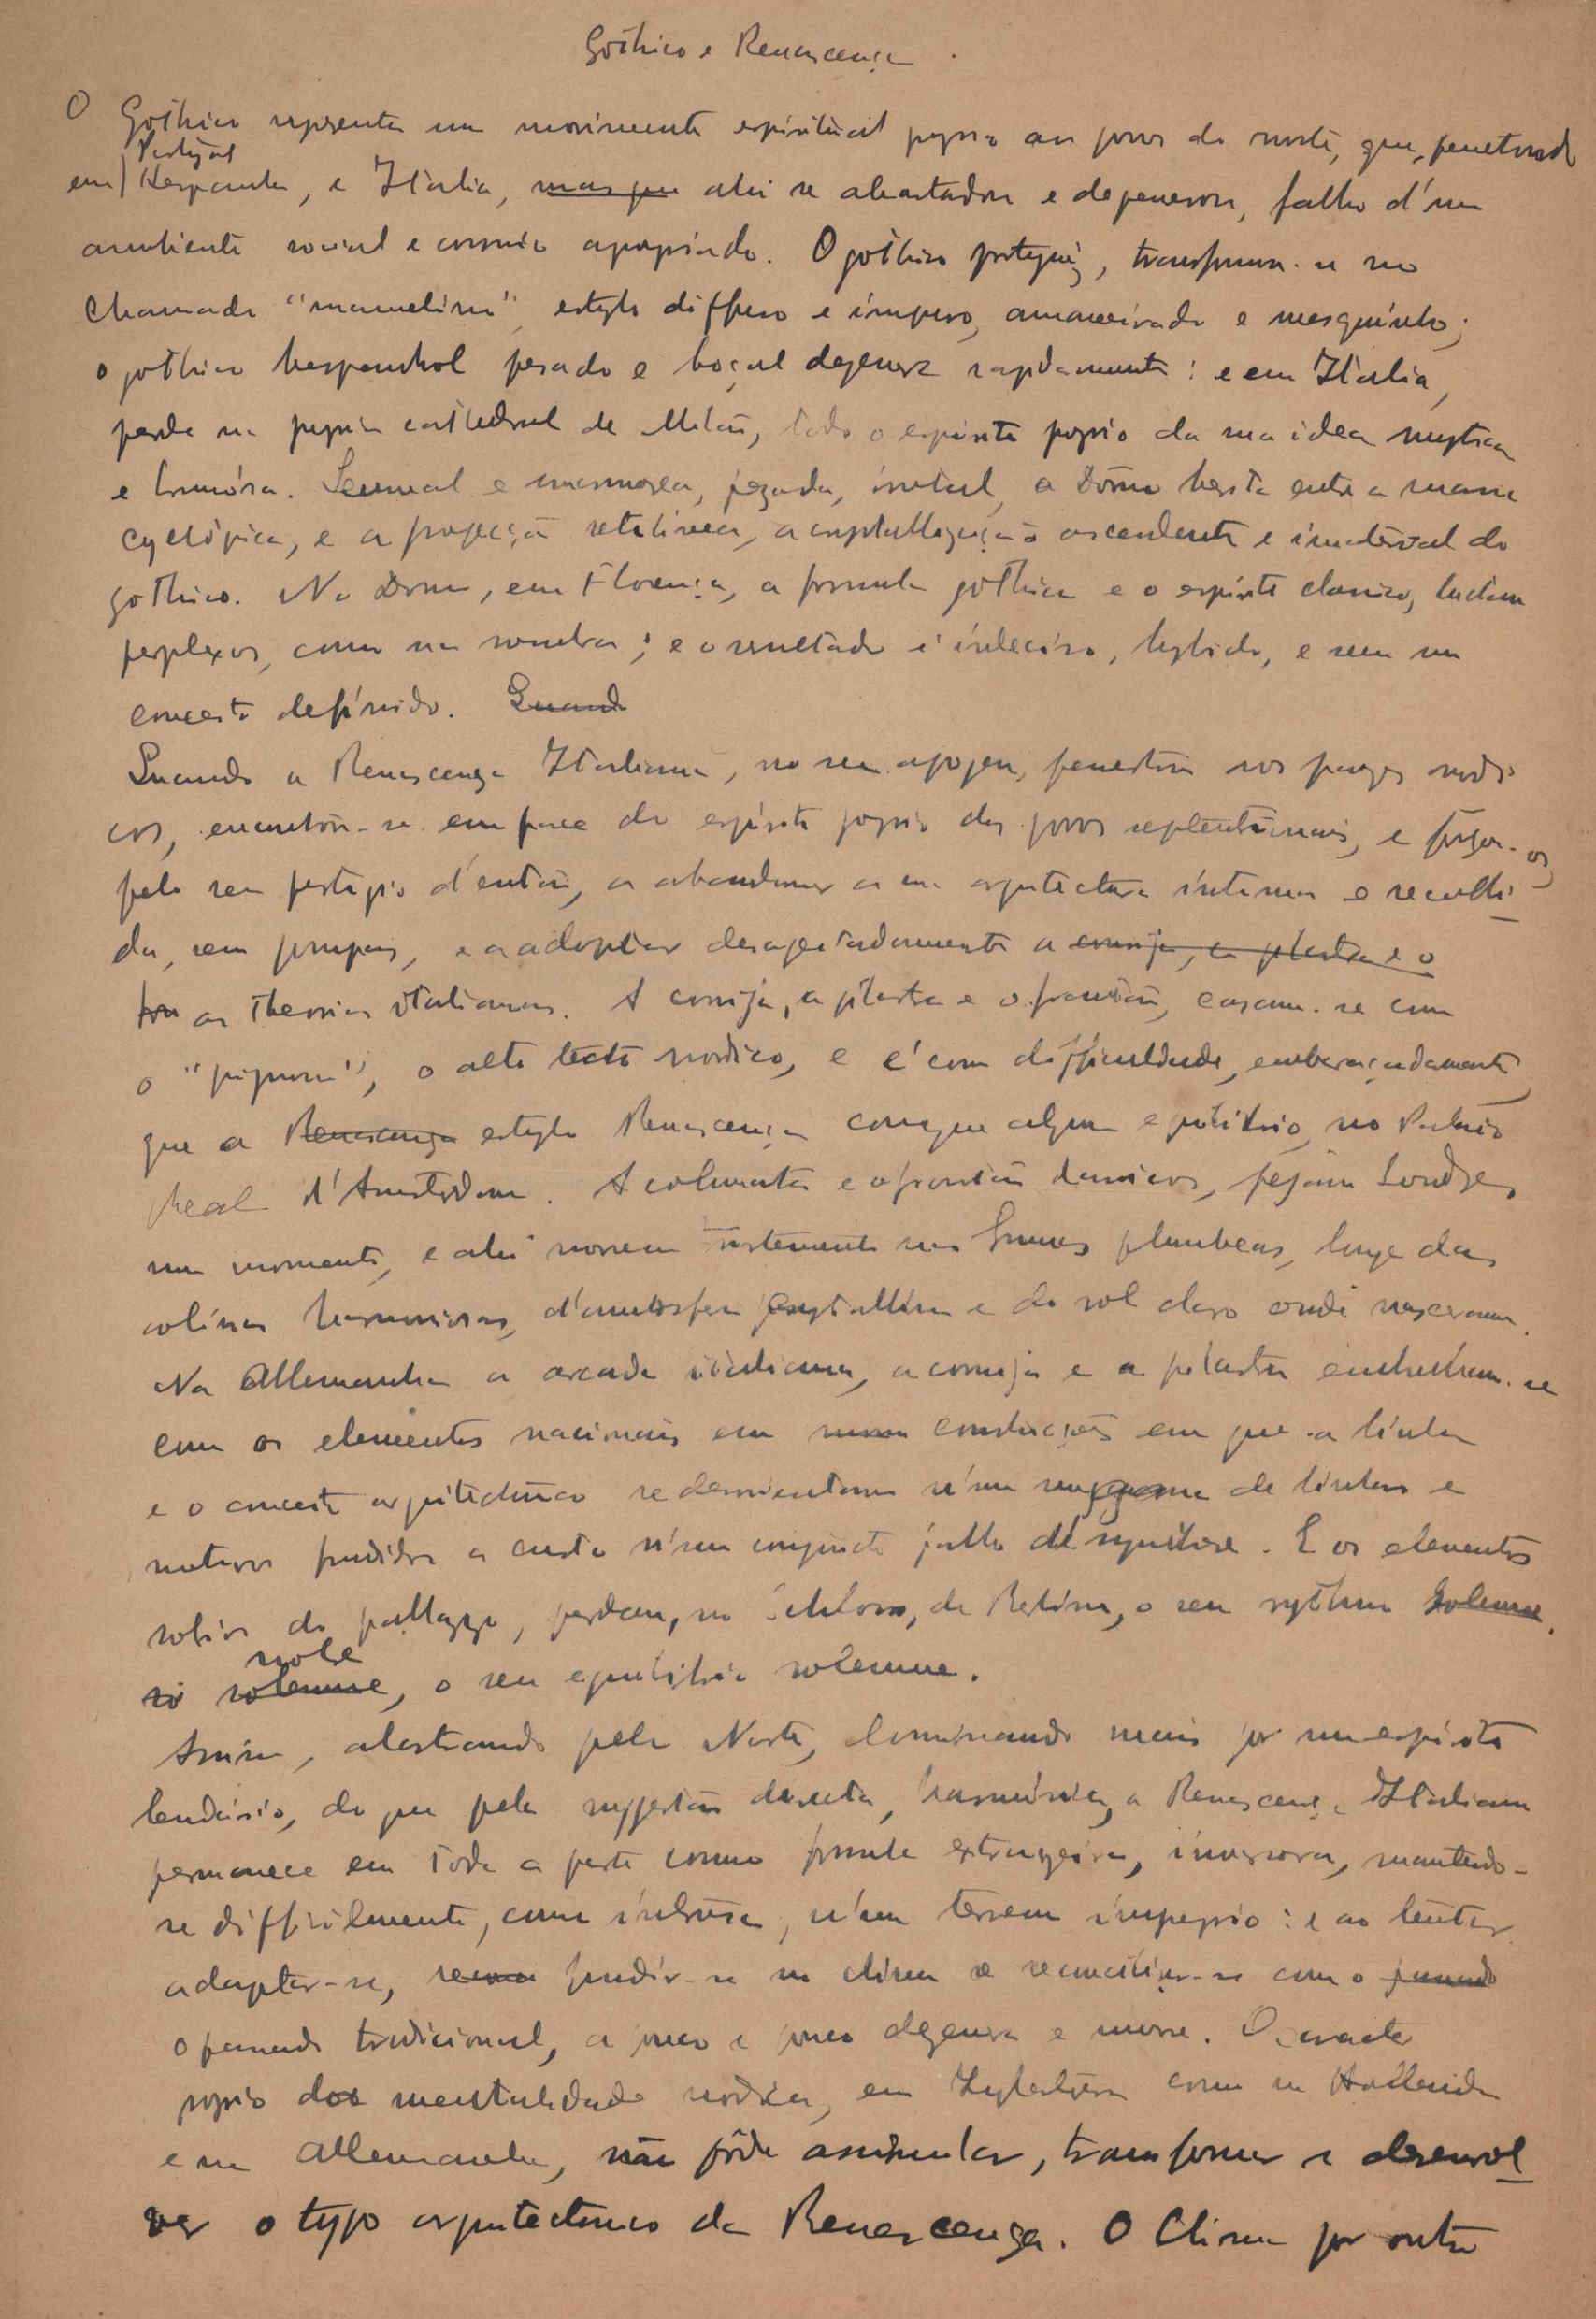 Gothico e Renascença
O Gothico representa um movimento espiritual proprio aos povos do norte, que, penetrando
Portugal
em Hespanha, e Italia, mas que ahi se abastardou e degenerou, falho d'um
ambiente social e cosmico apropriado. O gothico portuguez, transforma-se no
chamado "manuelino", estylo diffuso e impuro, amaneirado e mesquinho;
o gothico hespanhol pesado e boçal degenera rapidamente: e em Italia,
perde na propria cathedral de Milão, todo o espirito proprio da sua idea mystica
e . Sensual e marmorea, pezada, a Dômo hesita entre a massa
cyclópica, e a projecção retilinea, a crystallização ascendente e imaterial do
gothico. No Domo, em Florença, a formula gothica e o espirito classico, luctam
perplexos, como na sombra; e o resultado é indeciso, hybrido, e sem um
conceito definido. Quando
Quando a Renascença Italiana, no seu apogeu, penetrou nos paizes nordi-
cos, encontrou-se em face do espirito proprio dos povos septentrionais, e forçou-os
pelo seu prestigio d'então, a abandonar a sua arquitectura intima e recolhi-
da, sem pompas, e a adoptar desageitadamente a cornija, a pilastra e o
fron as theorias italianas. A cornija, a pilastra e o frontão, casam-se com
o "pignon", o alto tecto nordico, e é com difficuldade, embaraçadamente,
que a Renascença estylo Renascença consegue algum equilibrio, no Palacio
Real d'Amsterdam. A columnata e o frontão classicos, fejam Londres,
um momento, e ahi morrem tristemente nas brumas plumbeas, longe das
colinas harmoniosas, d'atmosfera crystallina e do sol claro onde nasceram.
Na Allemanha a arcada italiana, a cornija e a pilastra embrulham-se
com os elementos nacionais em construcções em que a linha
e o conceito arquitectonico se desorientam n'um de linhas e
motivos fundidos a custo n'um conjuncto falho de synthese. E os elementos
sobrios do pallazzo, perdem, no Schloss, de Berlim, o seu rythmo solemne.
nobre
solemne, o seu equilibrio solemne.
Assim, alastrando pelo Norte, dominando mais por um espirito
lendário, do que pela suggestão directa, harmónica, a Renascença Italiana
permanece em toda a parte como formula extrangeira, invasora, mantendo-
se difficilmente, como intrusa, n'um terreno improprio: e ao tentar
adaptar-se, fundir-se no clima e reconciliar-se com o passado
o passado tradicional, a pouco e pouco degenera e morre. O caracter
proprio da mentalidade nordica, em Inglaterra como na Hollanda
e na Allemanha, não pôde assimilar, transformar e desenvol-
ver o typo arquitectonico da Renascença. O clima por outro